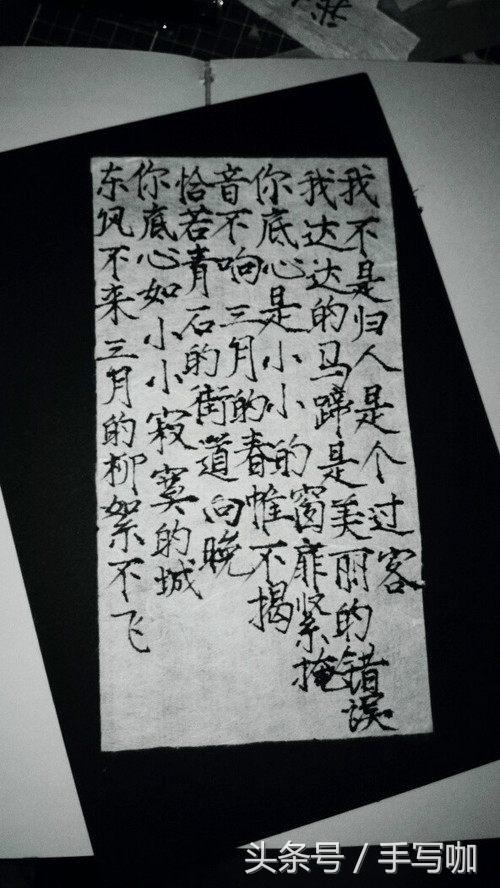 东风不来三月的柳絮不飞
你底心如小小寂寞的城
恰若青石的街道向晚
音不响三月的春帷不揭
你底心是小小的窗扉紧掩
我达达的马蹄是美丽的错误
我不是归人是个过客
头条号 / 手写咖